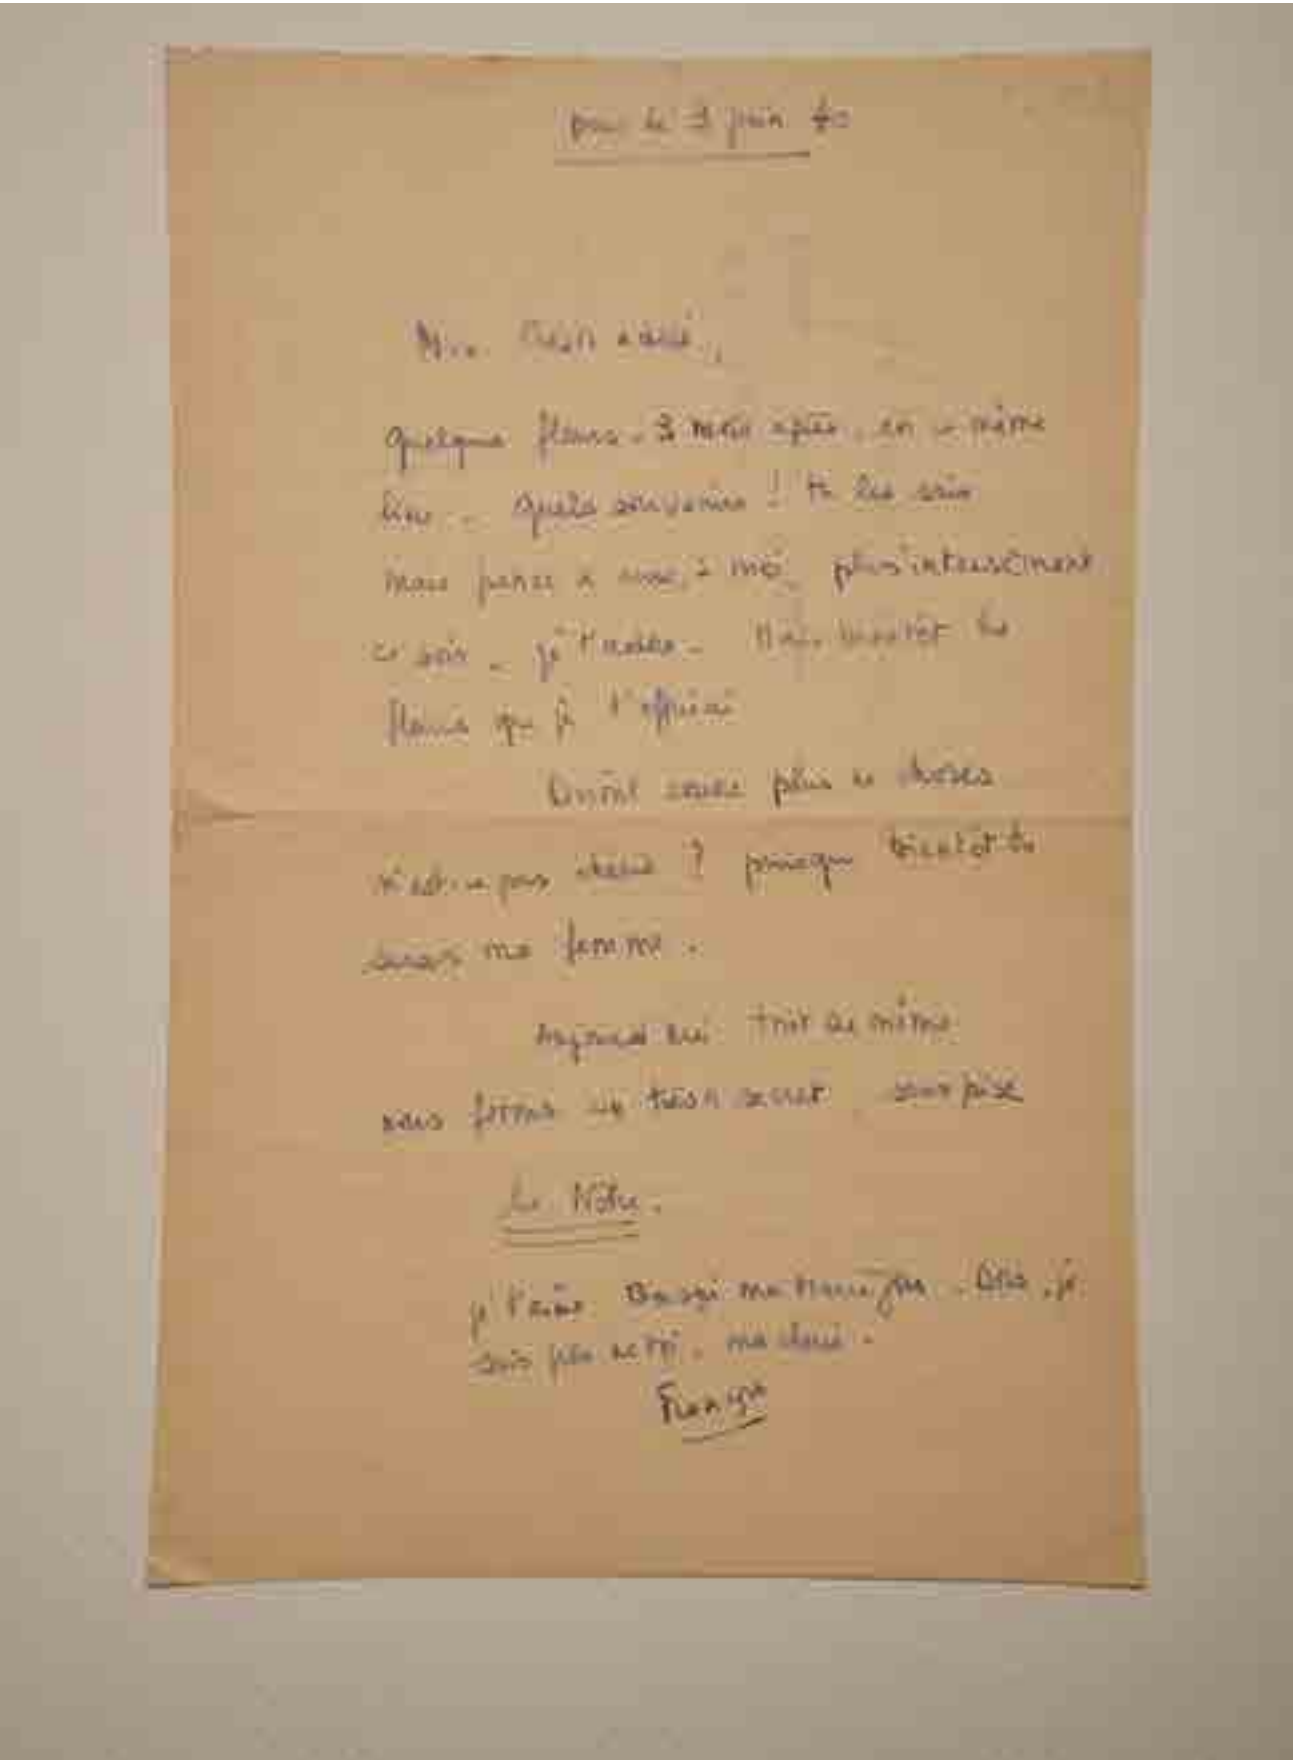 pour le 3 juin 40
Mon trésor adoré,
Quelques fleurs. 3 mois après, en ce même
lieu. Quels souvenirs ! Tu les sais
mais pense à eux, à moi, plus intensément
ce soir. je t'adore. Mais bientôt les
fleurs que je t'offrirai
Diront encore plus de choses
n'est-ce pas chérie ? puisque bientôt tu
seras ma femme.
Aujourd'hui tout de même
nous ferons un trésor secret, sans prix
Le Nôtre.
je t'aime ma. Dis, je
suis près de toi, ma chérie.
François